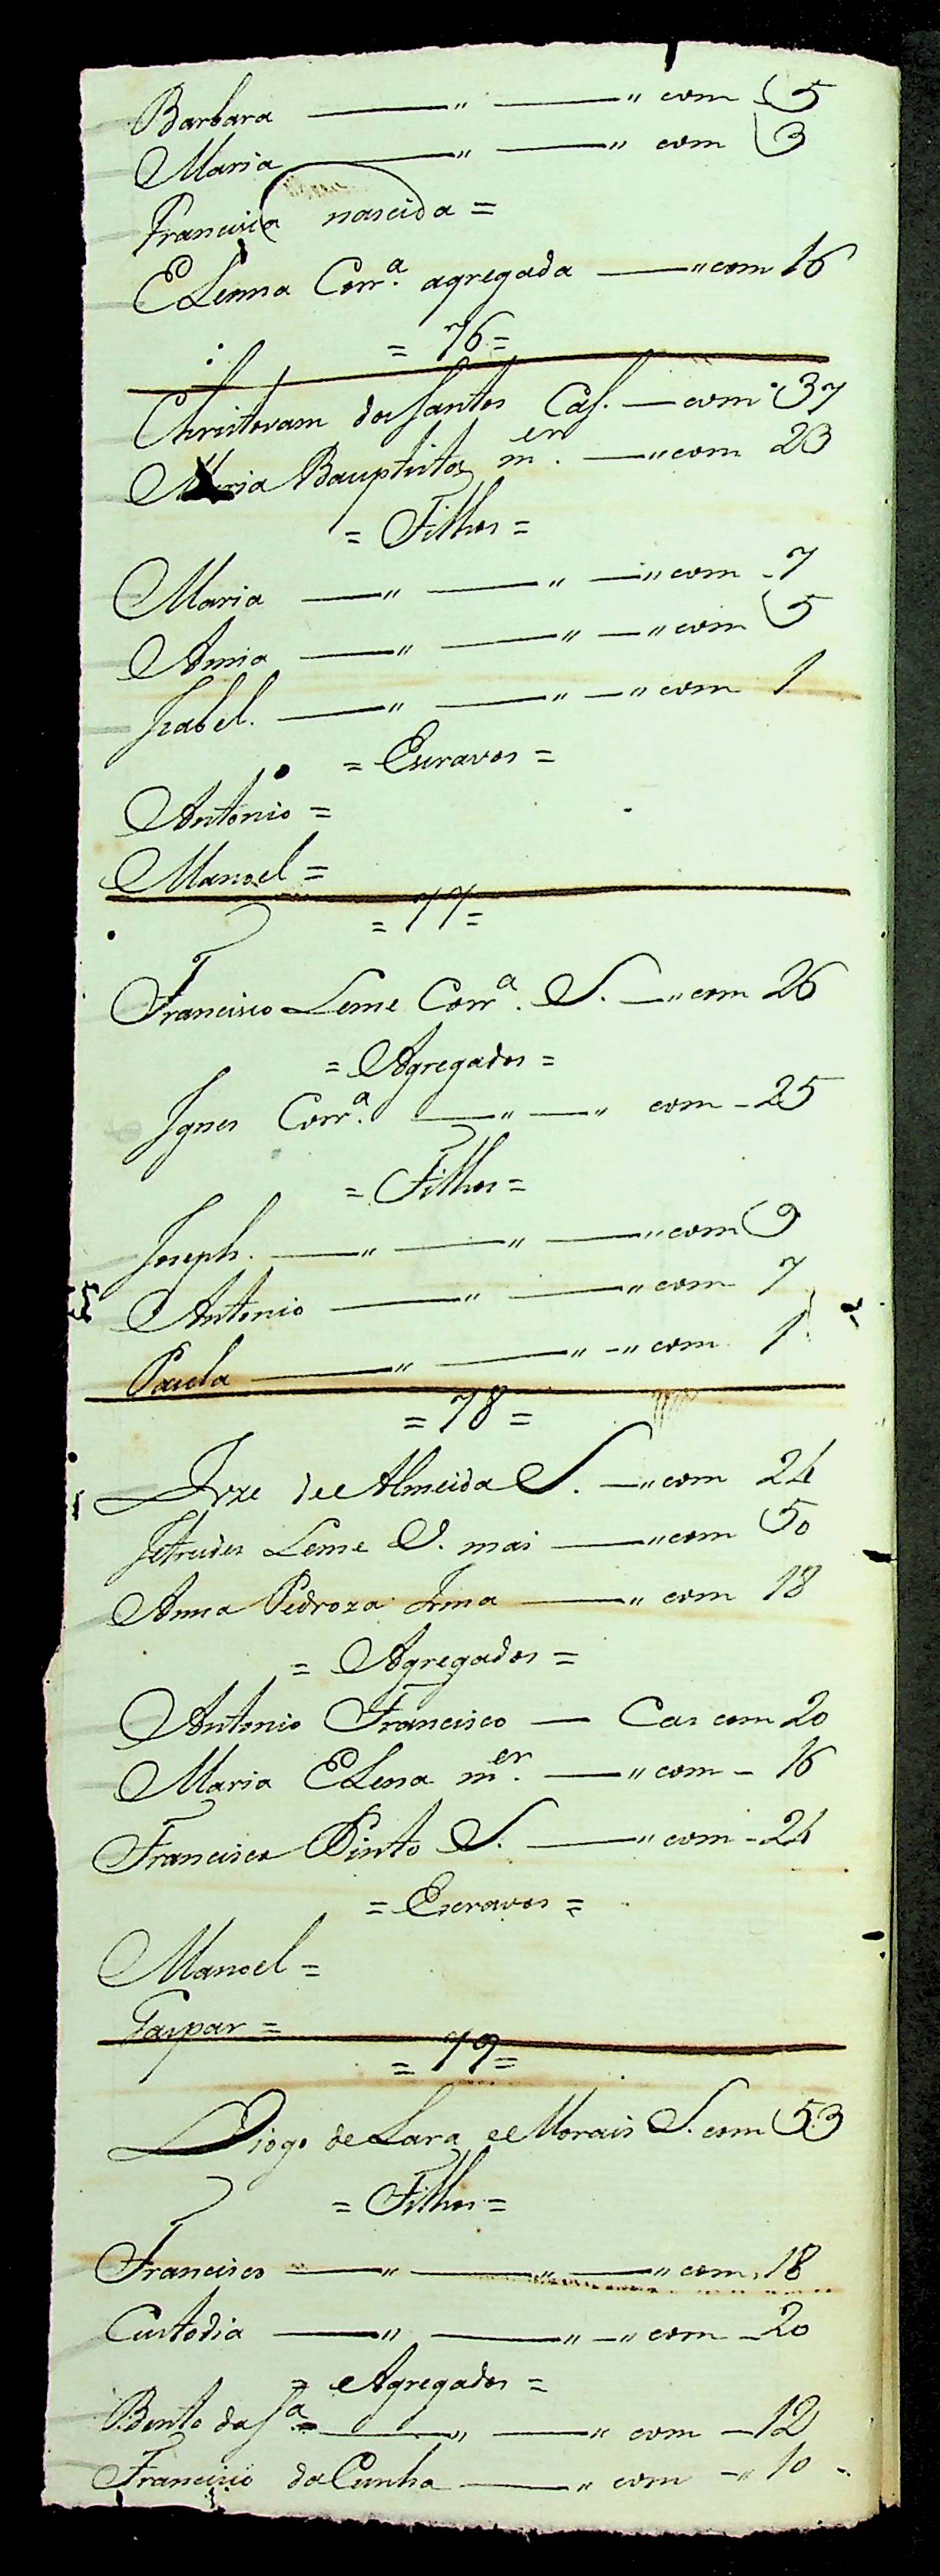 Barbara ——" ——" com 5
Maria ——" ——" com 3
Francisca nascida =
ELenna Corr.ª agregada ——" com 16
= 76 =
Christovam dos Santos Cas. — com 37
Maria Bauptista m.er ——" com 23
= Filhos =
Maria ——" ——" —" com 7
Anna ——" ——" —" com 5
Izabel. ——" ——" —" com 1
= Escravos =
Antonio =
Manoel =
= 77 =
Francisco Leme Corr.ª S. —" com 26
= Agregados =
Ignes Corr.ª ——" —" com 25
= Filhos =
Joseph. ——" ——" ——" com 9
Antonio ——" ——" com 7
Paula ——" ——" —" com 1
= 78 =
Joze de Almeida S. —" com 24
Leme V. mai ——" com 50
Anna Pedroza Irma ——" com 18
= Agregados =
Antonio Francisco — Cas com 20
Maria ELena m.er ——" com 16
Francisco Pinto S. ——" com 24
= Escravos =
Manoel =
Gaspar =
= 79 =
Diogo de Lara e Morais S. com 53
= Filhos =
Francisco ——" ——" ——" com 18
Custodia ——" ——" —" com 20
= Agregados =
Bento da S.ª ——" ——" com 12
Francisco da Cunha ——" com —" 10